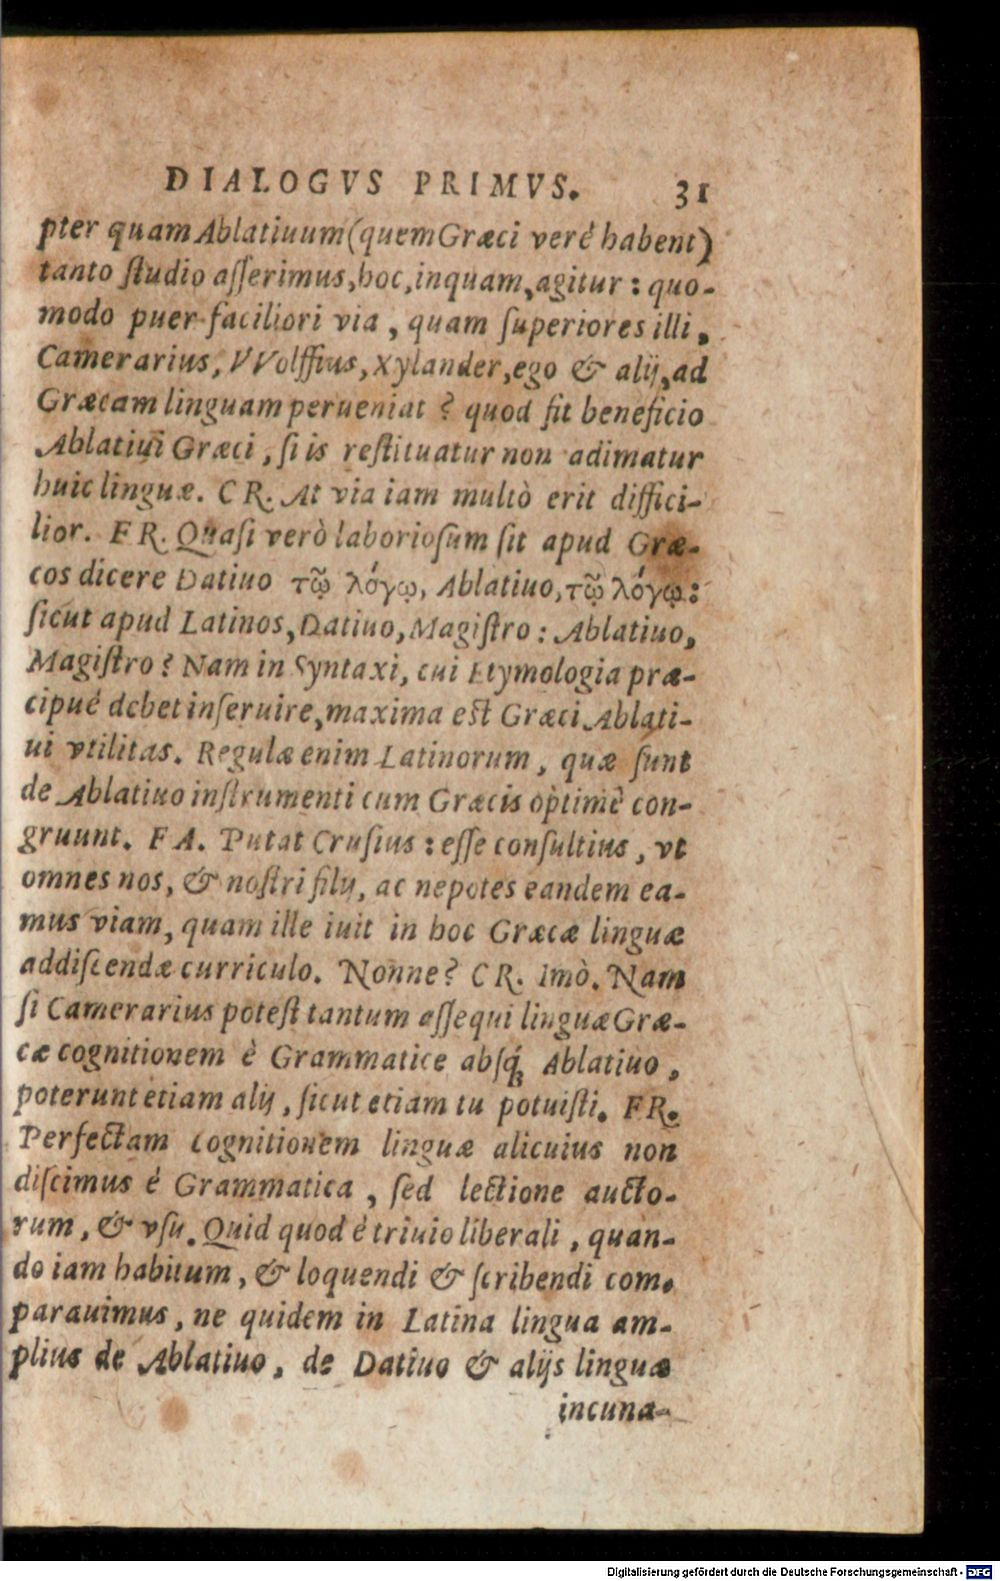 DIALOGVS PRIMVS. 31
pter quam Ablatiuum (quem Græci verè habent)
tanto ſtudio aſſerimus, hoc, inquam, agitur: quo-
modo puer faciliori via, quam ſuperiores illi,
Camerarius, VVolffius, Xylander, ego & alij, ad
Græcam linguam perueniat? quod fit beneficio
Ablatiui Græci, ſi is reſtituatur non adimatur
huic linguæ. CR. At via iam multò erit diffici-
lior. FR. Quaſi verò laborioſum ſit apud Græ-
cos dicere Datiuo τῷ λόγῳ, Ablatiuo, τῷ λόγῳ:
ſicut apud Latinos, Datiuo, Magiſtro: Ablatiuo,
Magiſtro? Nam in Syntaxi, cui Etymologia præ-
cipuè debet inſeruire, maxima est Græci Ablati-
ui vtilitas. Regulæ enim Latinorum, quæ ſunt
de Ablatiuo inſtrumenti cum Græcis optimè con-
gruunt. FA. Putat Cruſius: eſſe conſultius, vt
omnes nos, & noſtri filij, ac nepotes eandem ea-
mus viam, quam ille iuit in hoc Græcæ linguæ
addiſcendæ curriculo. Nonne? CR. Imò. Nam
ſi Camerarius poteſt tantum aſſequi linguæ Græ-
cæ cognitionem è Grammatice abſq́; Ablatiuo,
poterunt etiam alij, ſicut etiam tu potuiſti. FR.
Perfectam cognitionem linguæ alicuius non
diſcimus è Grammatica, ſed lectione aucto-
rum, & vſu. Quid quod è triuio liberali, quan-
do iam habitum, & loquendi & ſcribendi com-
parauimus, ne quidem in Latina lingua am-
plius de Ablatiuo, de Datiuo & alijs linguæ
incuna-
Digitalisierung gefördert durch die Deutsche Forschungsgemeinschaft - DFG